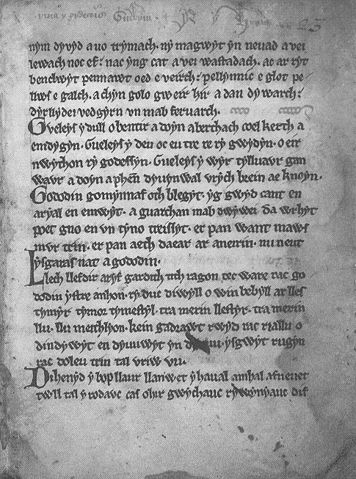 nym dyvyd a uo trymach. ny magwyt yn neuad a vei
lewach noc ef. nac yng cat a vei wastadach. ac ar ryt
benclwyt pennawt oed e veirch. pellynnic e glot pe
llws e galch. a chyn golo gweir hir a dan dywarch:
dyrllydei vedgyrn vn mab feruarch.
Gueleys y dull o bentir a doyn aberthach coel kerth a
emdygyn. Gueleys y deu oc eu tre re ry gwydyn. o eir
nwython ry godessyn. Gueleys y wyr tylluavr gan
wavr a doyn a phen dyuynwal vrych brein ae knoyn.
Gododin gomynnaf oth blegyt. yg gwyd cant en
aryal en emwyt. a guarchan mab dwywei. da wrhyt
poet gno en vn tyno treissyt. er pan want maws
mvr trin. er pan aeth daear ar aneirin. nu neut
ysgaras nat a gododin.
Llech llefdir aryf gardith tith ragon tec ware rac go
dodin ystre anhon. ry duc diwyll o win bebyll ar lles
tymyr. tymor tymestyl. tra merin llestyr. tra merin
llu. llu meithlyon. kein gadrawt rwyd rac riallu o
dindywyt en dyuuwyt yn ysgwyt rugyn
rac doleu trin tal vriw vu.
Dihenyd y bop llaur llanwet y haual amhal afneuet
twll tal y rodavc cas ohir gwychauc rywynyauc dif